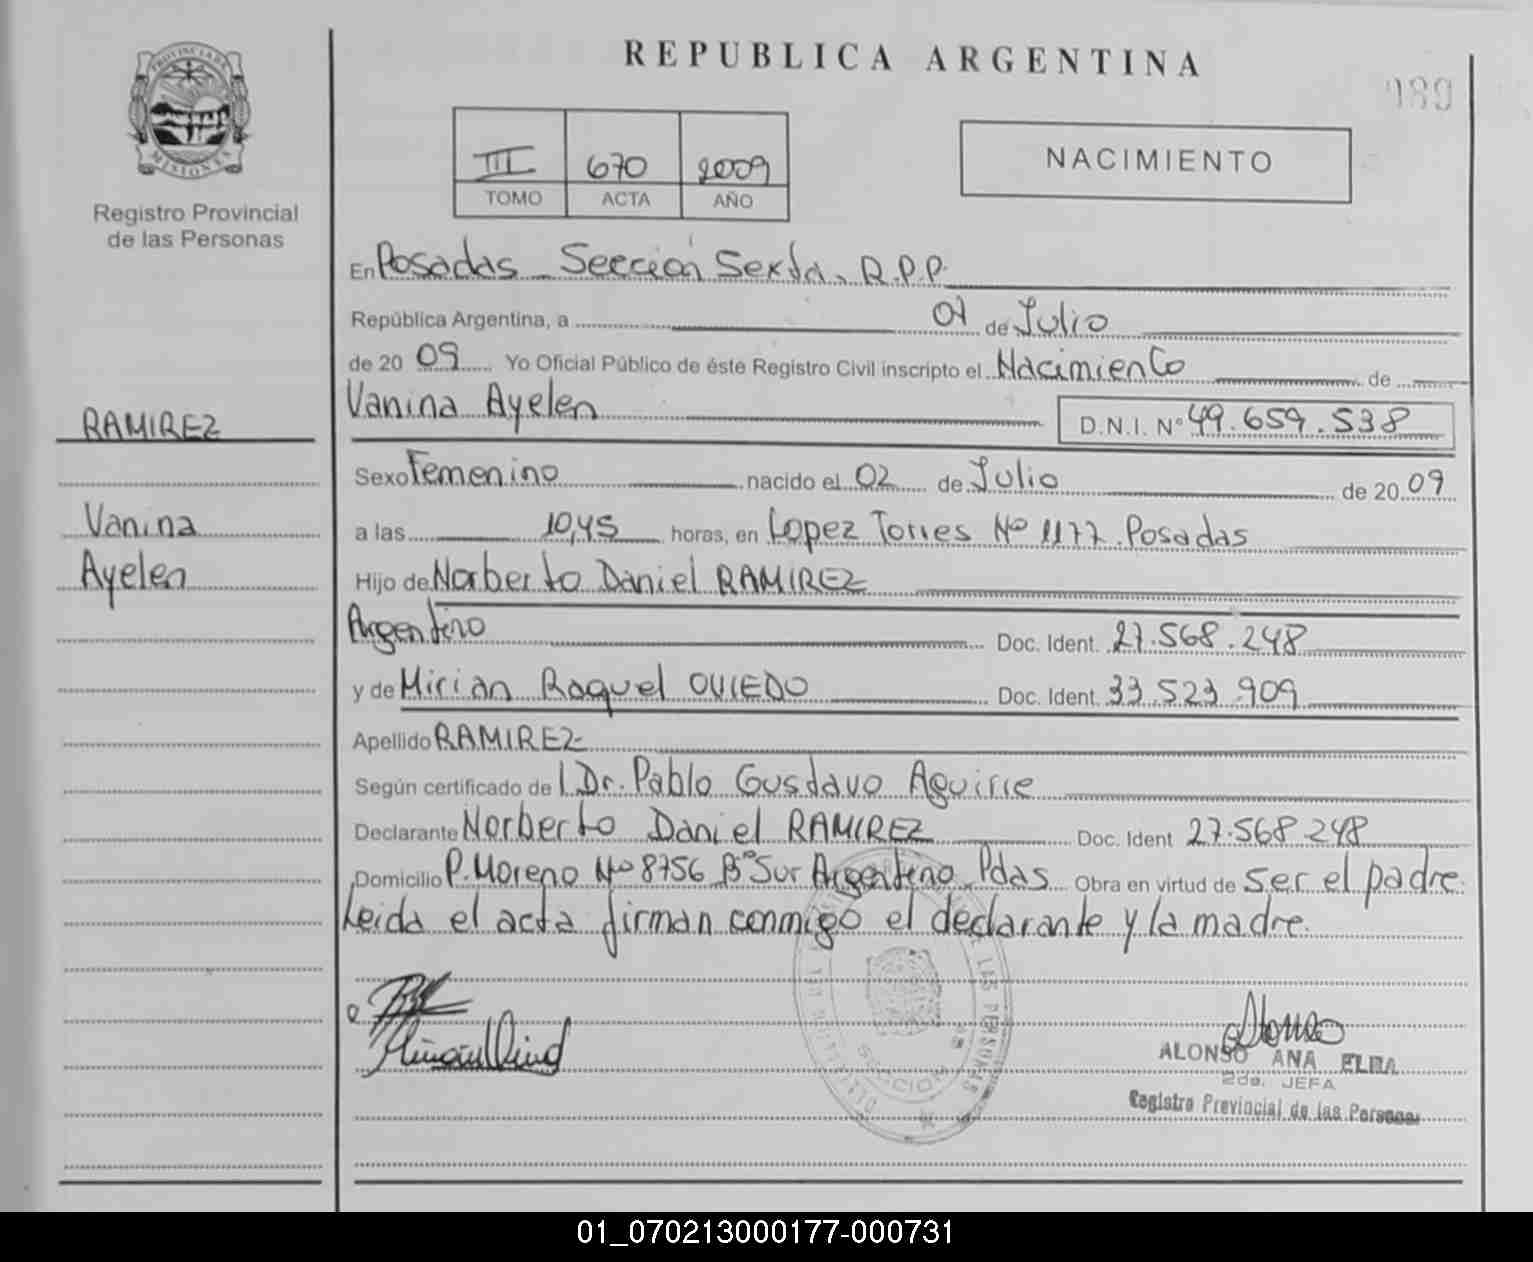 REPUBLICA ARGENTINA
189
PROVINCIA DE MISIONES
Registro Provincial
de las Personas
III 670 2009
TOMO ACTA AÑO
NACIMIENTO
En Posadas - Sección Sexta. R.P.P.
República Argentina, a 07 de Julio
de 20 09 Yo Oficial Público de éste Registro Civil inscripto el Nacimiento de
Vanina Ayelen D.N.I. Nº 49.659.538
RAMIREZ
Sexo Femenino nacido el 02 de Julio de 20 09
Vanina
a las 10,45 horas, en Lopez Torres Nº 1177 Posadas
Ayelen
Hijo de Norberto Daniel RAMIREZ
Argentino Doc. Ident. 27.568.248
y de Mirian Raquel OVIEDO Doc. Ident. 33.523.909
Apellido RAMIREZ
Según certificado de l Dr. Pablo Gustavo Aguirre
Declarante Norberto Daniel RAMIREZ Doc. Ident 27.568.248
Domicilio P. Moreno Nº 8756 Bº Sur Argentino. Pdas Obra en virtud de ser el padre.
Leida el acta firman conmigo el declarante y la madre.
LAS PERSONAS
SECCION
Alonso
ALONSO ANA ELBA
2da. JEFA
Registro Provincial de las Personas
01_070213000177-000731